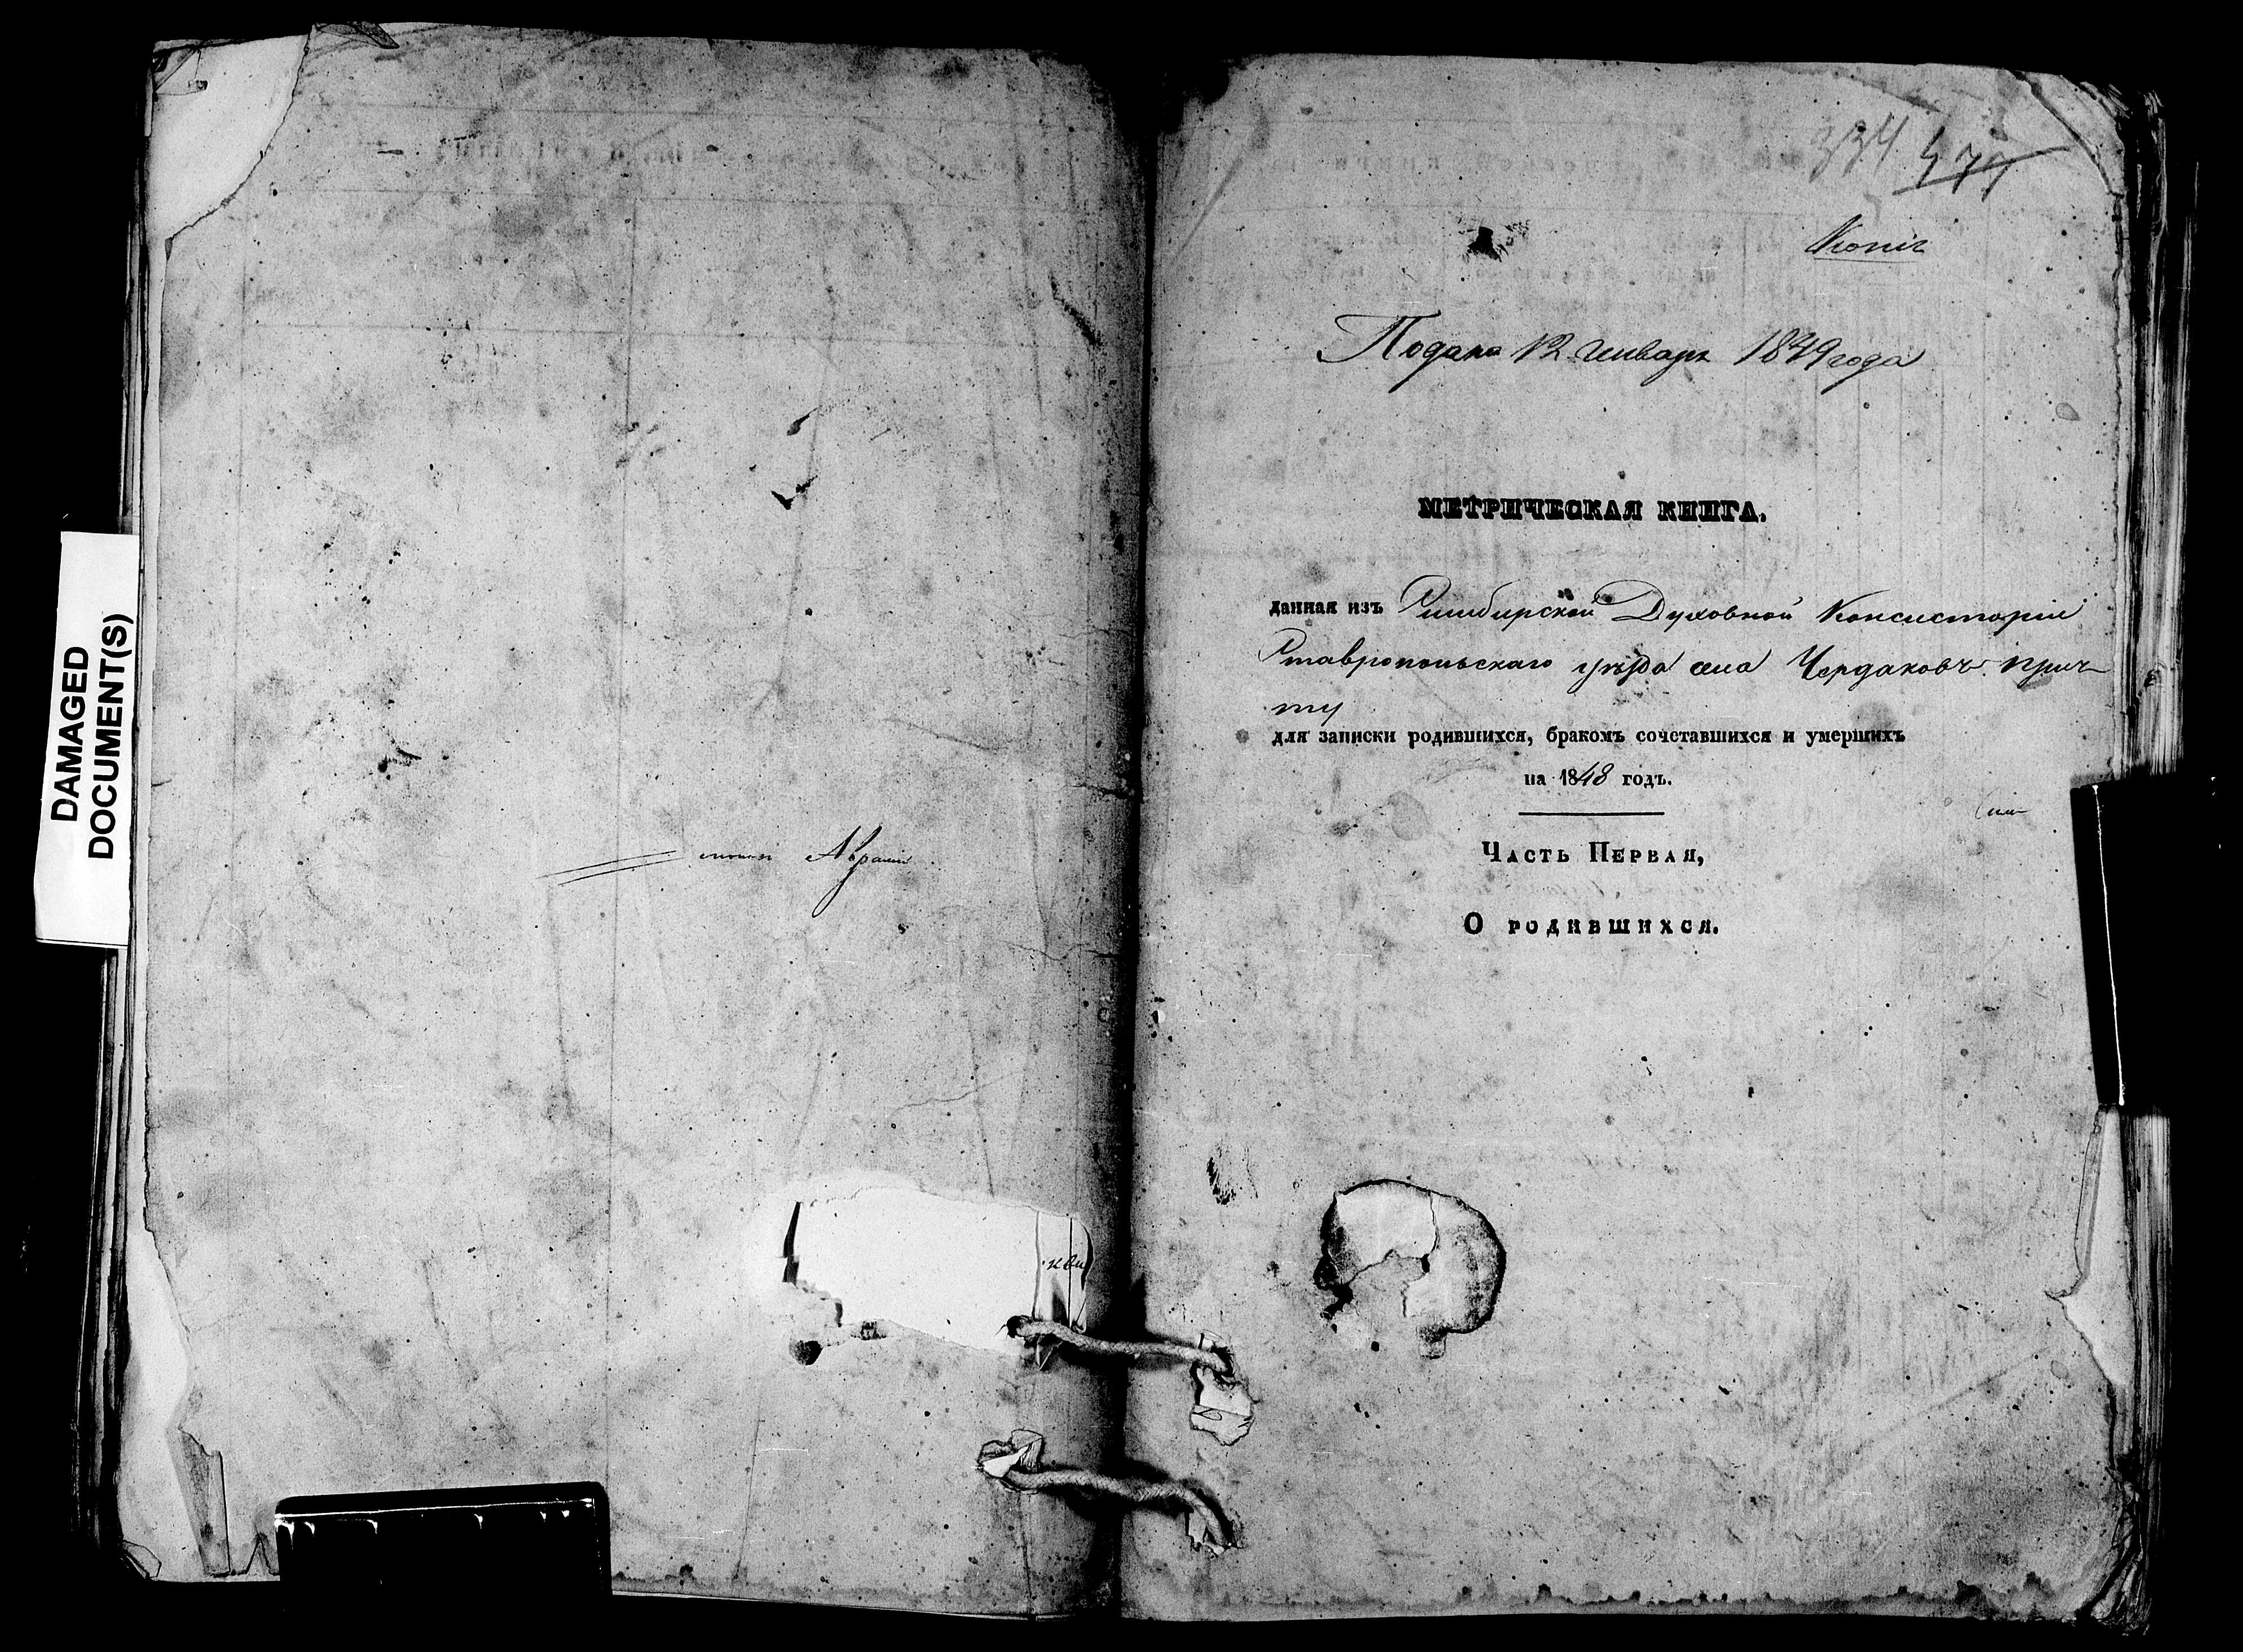 DAMAGED
DOCUMENT(S)
Аврамій
334 474
Копія
Подана 12 Генваря 1849 года
МЕТРИЧЕСКАЯ КНИГА,
данная изъ Симбирской Духовной Консисторіи
Ставропольскаго уѣзда села Чердаковъ прич-
ту
для записки родившихся, бракомъ сочетавшихся и умершихъ
на 1848 годъ.
Часть Первая,
О родившихся.